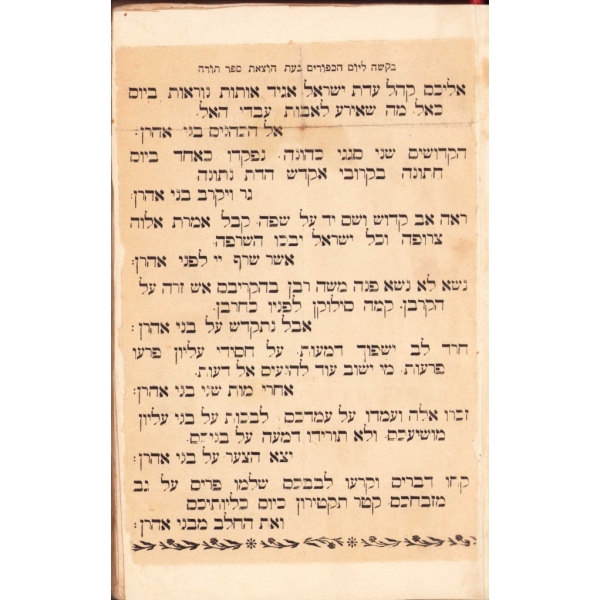 בקשה ליום הכפורים בעת הוצאת ספר תורה
אליכם קהל עדת ישראל אגיד אותות נוראות ביום
כאל. מה שאירע לאבות עבדי האל.
אל הכהנים בני אהרן:
הקדושים שני סגני כהונה. נפקדו כאחד ביום
חתונה בקרובי אקדש הדת נתונה
גר ויקרב בני אהרן:
ראה אב קדוש ושם יד על שפה. קבל אמרת אלוה
צרופה וכל ישראל יבכו השרפה.
אשר שרף יי לפני אהרן:
נשא לא נשא פנה משה רבן בהקריבם אש זרה על
הקרבן. קמה סילוקן לפניו כחרבן.
אבל נתקדש על בני אהרן:
חרד לב ישפוך דמעות. על חסידי עליון פרעו
פרעות. מי ישוב עוד להנעים אל דעות.
אחרי מות שני בני אהרן:
זכרו אלה ועמדו על עמדכם. לבכות על בני עליון
מושיעכם. ולא תורידו דמעה על בניכם.
יצא הצער על בני אהרן:
קחו דברים וקרעו לבבכם שלמו פרים על גב
מזבחכם. קטר תקטירון כיום כליותיכם
ואת החלב מבני אהרן: